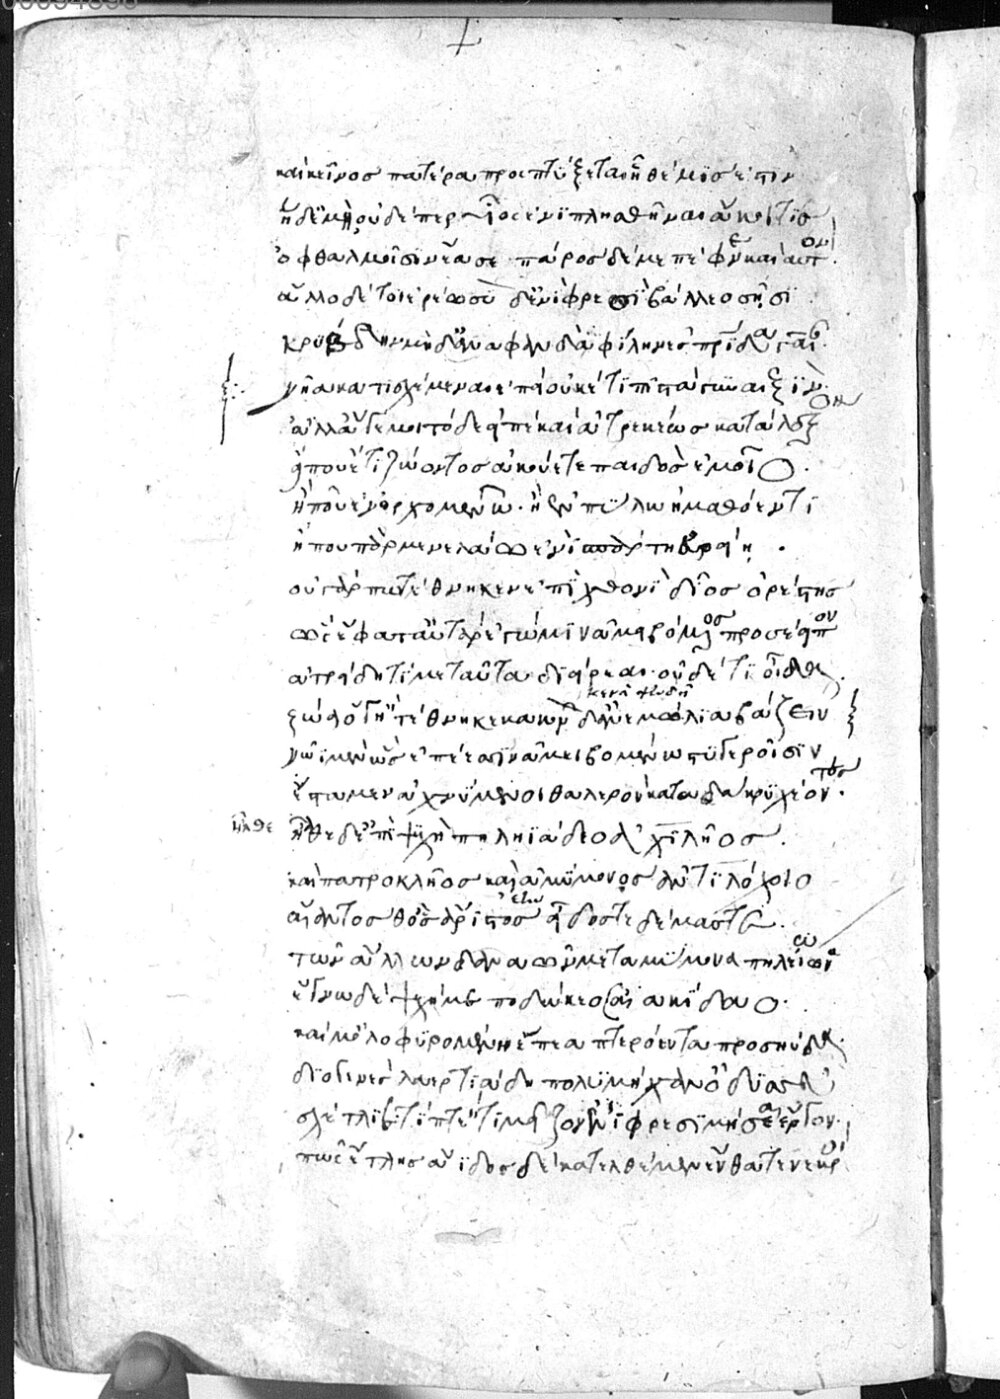 καὶ κεῖνος πατέρα προσπτύξεται ἣ θέμις ἐστιν
ἡ δ' ἐμὴ οὐδέ περ υἷος ἐνιπλησθῆναι ἄκοιτις
ὀφθαλμοῖσιν ἔασε πάρος δέ με πέφνε καὶ αὐτόν
ἄλλο δέ τοι ἐρέω σὺ δ' ἐνὶ φρεσὶ βάλλεο σῇσι
κρύβδην μὴ δ' ἀναφανδὰ φίλην ἐς πατρίδα γαῖαν
νῆα κατισχέμεναι ἐπεὶ οὐκέτι πιστὰ γυναιξίν
ἀλλ' ἄγε μοι τόδε εἰπὲ καὶ ἀτρεκέως κατάλεξον
εἴ που ἔτι ζώοντος ἀκούετε παιδὸς ἐμοῖο
ἤ που ἐν ὀρχομενῷ ἢ ἐν πύλῳ ἠμαθόεντι
ἤ που πὰρ μενελάῳ ἐνὶ σπάρτῃ εὐρείῃ
οὐ γάρ πω τέθνηκεν ἐπὶ χθονὶ δῖος ὀρέστης
ὣς ἔφατ' αὐτὰρ ἐγώ μιν ἀμειβόμενος προσέειπον
ἀτρείδη τί με ταῦτα διείρεαι οὐδέ τι οἶδα
ζώει ὅγ' ἢ τέθνηκε κακὸν δ' ἀνεμώλια βάζειν
νῶϊ μὲν ὣς ἐπέεσσιν ἀμειβομένω στυγεροῖσιν
ἕσταμεν ἀχνύμενοι θαλερὸν κατὰ δάκρυ χέοντες
ἦλθε
ἦλθε δ' ἐπὶ ψυχὴ πηληϊάδεω ἀχιλῆος
καὶ πατροκλῆος καὶ ἀμύμονος ἀντιλόχοιο
αἴαντός θ' ὃς ἄριστος ἔην εἶδός τε δέμας τε
τῶν ἄλλων δαναῶν μετ' ἀμύμονα πηλείωνα
ἔγνω δὲ ψυχή με ποδώκεος αἰακίδαο
καί μ' ὀλοφυρομένη ἔπεα πτερόεντα προσηύδα
διογενὲς λαερτιάδη πολυμήχαν' ὀδυσσεῦ
σχέτλιε τίπτ' ἔτι μεῖζον ἐνὶ φρεσὶ μήσεαι ἔργον
πῶς ἔτλης ἄϊδος δὲ κατελθέμεν ἔνθα τε νεκροὶ